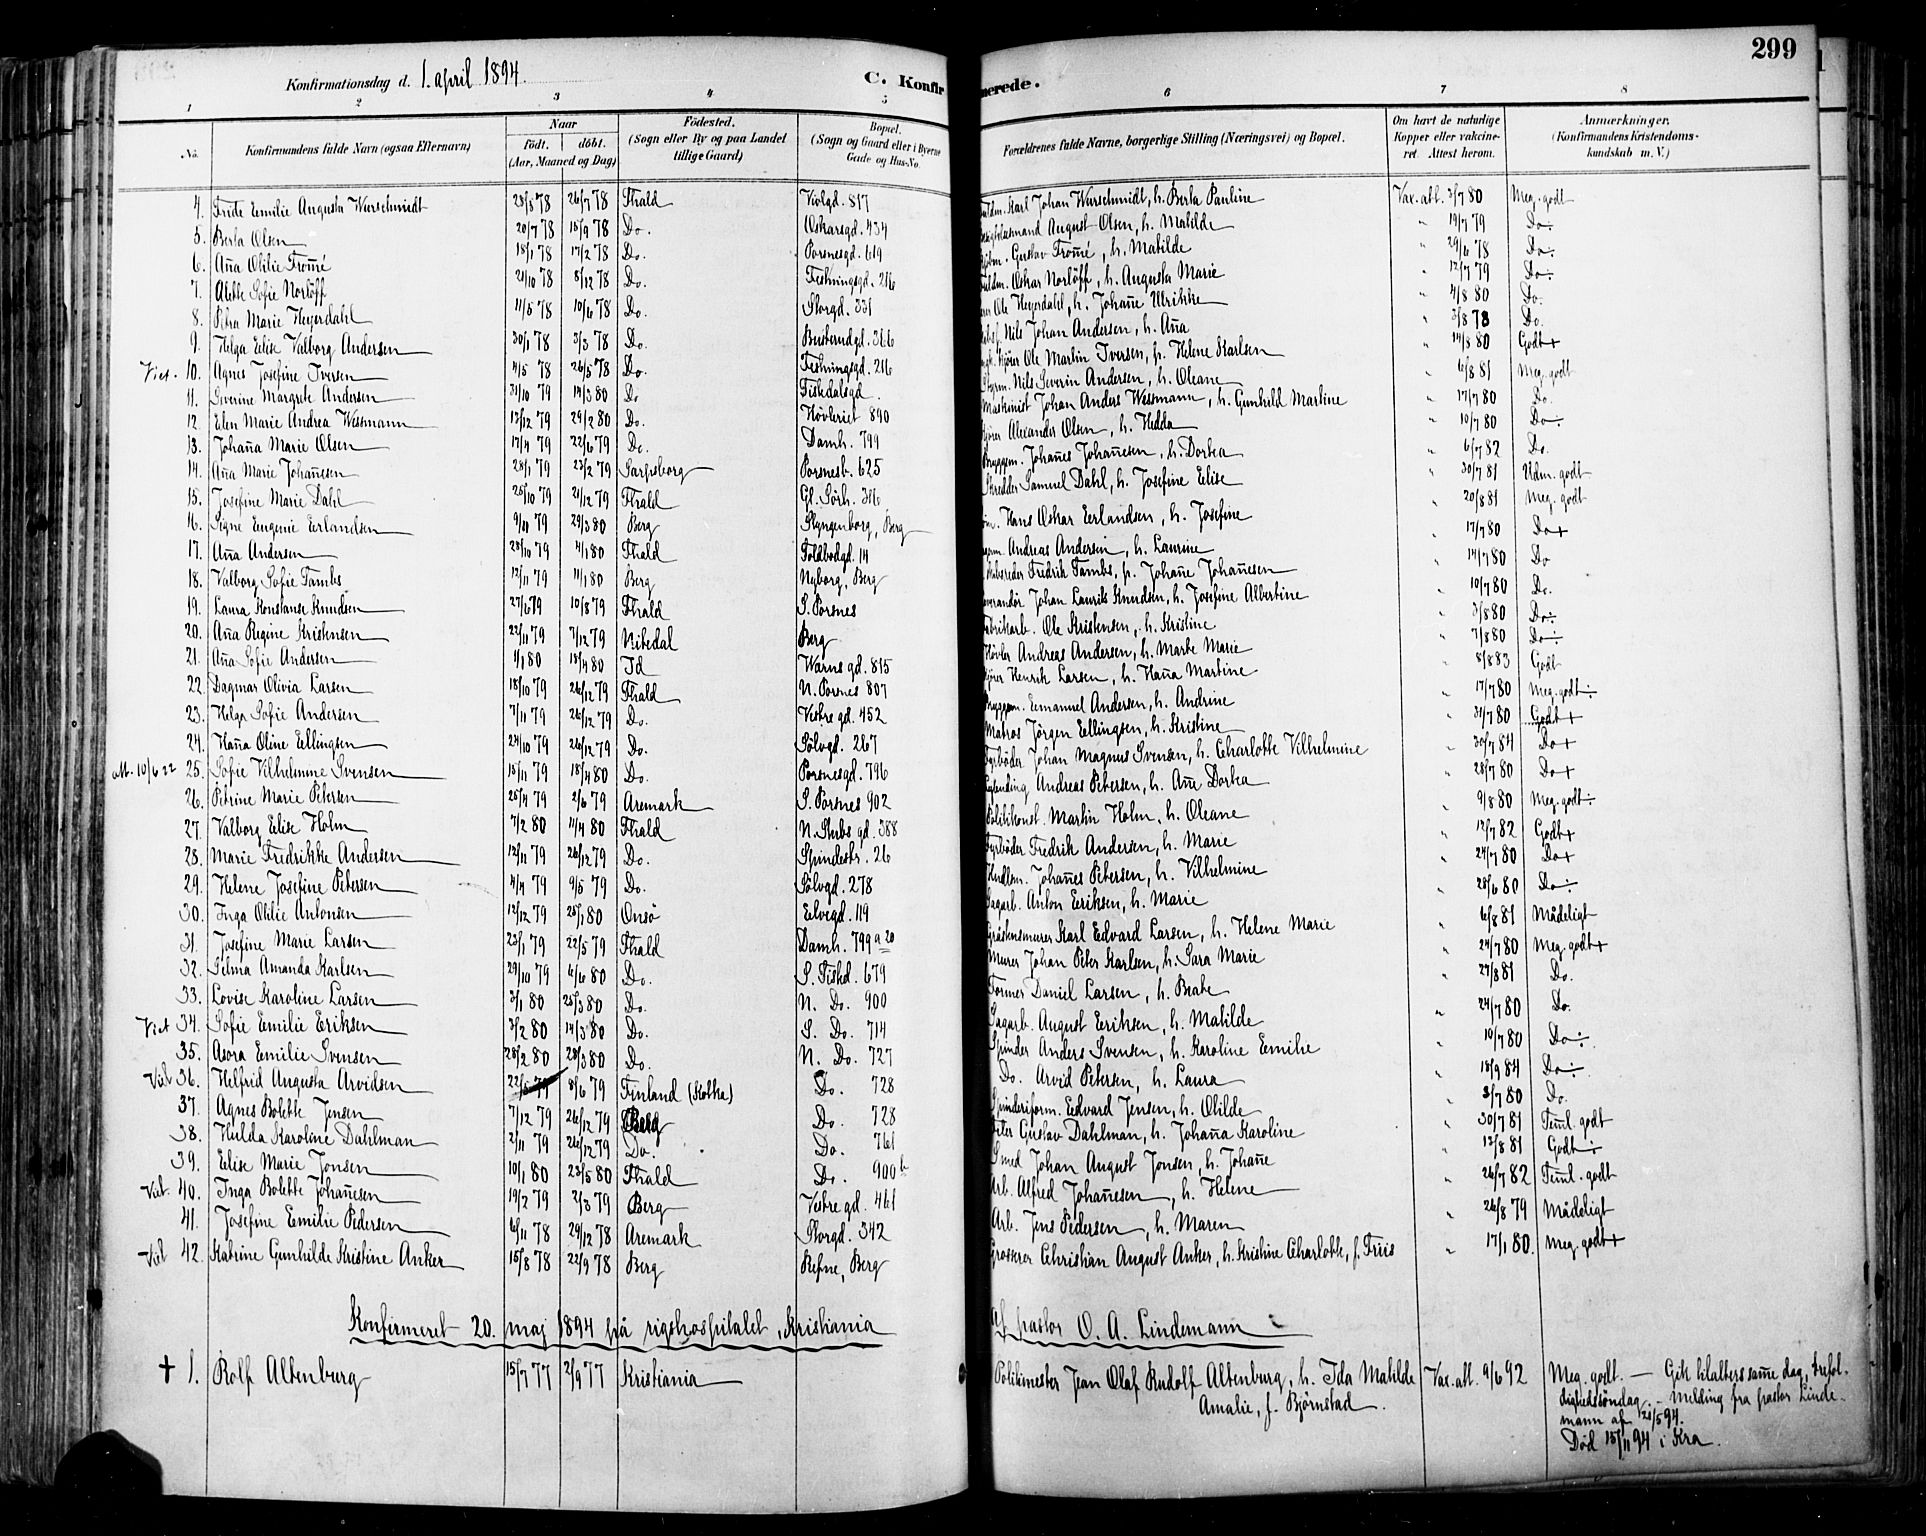 299
Konfirmationsdag d. 1. april 1894.
C. Konfir
merede.
1 2 3 4 5 6 7 8
No. Konfirmandens fulde Navn (ogsaa Efternavn) Naar födt. döbt. (Aar, Maaned og Dag) Födested. (Sogn eller By og paa Landet tillige Gaard) Bopæl. (Sogn og Gaard eller i Byerne Gade og Hus-No. Forældrenes fulde Navne, borgerlige Stilling (Næringsvei) og Bopæl. Om havt de naturlige Kopper eller vakcineret. Attest herom. Anmærkninger. (Konfirmandens Kristendomskundskab m. V.)
4. Emilie Augusta Warschmidt 26/7 78 Fhald Violgd. 817 Karl Johan Warschmidt, h. Berta Pauline Vax. att. 3/7 80 Meg. godt
5. Berta Olsen 20/7 78 15/9 78 Do. Oskarsgd. 434 August Olsen, h. Matilde " 19/7 79 Do.
6. Aña Otilie Tromé 18/1 78 17/2 78 Do. Porsnesgd. 619 Gustav Tromé, h. Matilde " 29/6 78 Do.
7. Alette Sofie Norlöff 21/10 78 8/12 78 Do. Festningsgd. 216 Oskar Norlöff, h. Augusta Marie " 12/7 79 Do.
8. Petra Marie Heyerdahl 11/5 78 10/6 78 Do. Storgd. 331 Ole Heyerdahl, h. Johañe Ulrikke " 4/8 80 Do.
9. Helga Elise Valborg Andersen 30/1 78 3/3 78 Do. Busterudgd. 366 Nils Johan Andersen, h. Aña " 3/8 78 Do.
Vict. 10. Agnes Josefine Iversen 4/5 78 26/5 78 Do. Festningsgd. 216 Ole Martin Iversen, h. Helene Karlsen " 14/8 80 Godt+
11. Severine Margrete Andersen 31/10 79 14/3 80 Do Fiskdalsgd. Nils Severin Andersen, h. Oleane " 6/8 81 Meg. godt
12. Elen Marie Andrea Wessmann 13/12 79 29/2 80 Do. Høvleriet 890 Maskinist Johan Anders Wessmann, h. Gunhild Martine " 17/7 80 Do.
13. Johaña Marie Olsen 17/4 79 22/6 79 Do. Damh. 799 Alexander Olsen, h. Hedda " 10/7 80 Do.
14. Aña Marie Johañesen 28/1 79 23/2 79 Sarpsborg Porsnesb. 625 Bryggem. Johañes Johañesen, h. Dortea " 6/7 82 Do.
15. Josefine Marie Dahl 25/10 79 21/12 79 Fhald Gl. Sørh. 316 Skredder Samuel Dahl, h. Josefine Elise " 30/7 81 Udm. godt
16. Signe Eugenie Erlandsen 9/11 79 29/3 80 Berg Slyngenborg, Berg Hans Oskar Erlandsen, h. Josefine " 20/8 81 Meg. godt
17. Aña Andersen 28/10 79 4/1 80 Fhald Toldbodgd. 14 Andreas Andersen, h. Laurine " 17/7 80 Do+
18. Valborg Sofie Tambs 12/11 79 11/1 80 Berg Nyborg, Berg Fredrik Tambs, h. Johañe Johañesen " 14/7 80 Do
19. Laura Konstanse Knudsen 27/6 79 10/8 79 Fhald S. Porsnes Johan Laurits Knudsen, h. Josefine Albertine " 10/7 80 Do.
20. Aña Regine Kristensen 22/11 79 7/12 79 Nitedal Berg Fabrikarb. Ole Kristensen, h. Kristine " 3/8 80 Do.
21. Aña Sofie Andersen 1/1 80 18/4 80 Id Warns gd. 815 Høvler Andreas Andersen, h. Marte Marie " 7/8 80 Do.
22. Dagmar Olivia Larsen 18/10 79 26/12 79 Fhald N. Porsnes 807 Kjører Henrik Larsen, h. Haña Martine " 8/8 83 Godt
23. Helga Sofie Andersen 7/11 79 26/12 79 Do. Vestre gd. 452 Bryggem. Emanuel Andersen, h. Andrine " 17/7 80 Meg. godt
24. Haña Oline Ellingsen 24/10 79 26/12 79 Do. Sølvgd. 267 Matros Jörgen Ellingsen, h. Kristine " 31/7 80 Godt+
M. 10/6 22 25. Sofie Vilhelmine Svensen 15/11 79 18/4 80 Do. Porsnesgd. 796 Fyrbøder Johan Magnus Svensen, h. Charlotte Vilhelmine " 30/7 84 Do+
26. Petrine Marie Petersen 25/4 79 2/6 79 Aremark S. Porsnes 902 Andreas Petersen, h. Añe Dortea " 28/7 80 Do+
27. Valborg Elise Holm 7/2 80 11/4 80 Fhald N. Stubs gd. 388 Politikonst. Martin Holm, h. Oleane " 9/8 80 Meg. godt
28. Marie Fredrikke Andersen 12/11 79 26/12 79 Do. Spindestr. 26 Fyrbøder Fredrik Andersen, h. Marie " 12/7 82 Godt+
29. Helene Josefine Petersen 4/4 79 9/5 79 Do. Sølvgd. 278 Johañes Petersen, h. Vilhelmine " 24/7 80 Do+
30. Inga Otilie Antonsen 12/12 79 25/1 80 Onsø Elvegd. 119 Sagarb. Anton Eriksen, h. Marie " 28/6 80 Do.
31. Josefine Marie Larsen 23/1 79 22/5 79 Fhald Damh. 799 a 20 Gråstensmurer Karl Edvard Larsen, h. Helene Marie " 6/8 81 Mådeligt
32. Selma Amanda Karlsen 29/10 79 6/6 80 Do. S. Fiskd. 679 Murer Johan Peter Karlsen, h. Sara Marie " 24/7 80 Meg. godt+
33. Lovise Karoline Larsen 3/1 80 25/3 80 Do. N. Do. 900 Former Daniel Larsen, h. Beate " 27/8 81 Do.
Vict 34. Sofie Emilie Eriksen 3/2 80 14/3 80 Do. S. Do. 714 Sagarb. August Eriksen, h. Matilde " 24/7 80 Do.
35. Asora Emilie Svensen 28/2 80 28/3 80 Do. N. Do. 727 Spinder Anders Svensen, h. Karoline Emilie " 10/7 80 Do.
Vict 36. Helfrid Augusta Arvidsen 22/5 79 8/6 79 Finland (Kotka) Do. 728 Do. Arvid Petersen, h. Laura " 18/9 84 Do.
37. Agnes Bolette Jensen 7/12 79 26/12 79 Berg Do. 728 Spinderiform. Edvard Jensen, h. Otilde " 3/7 80 Do.
38. Hulda Karoline Dahlman 2/11 79 26/12 79 Do. Do. 761 Gustav Dahlman, h. Johaña Karoline " 30/7 81 Teml. godt
39. Elise Marie Jonsen 10/1 80 23/5 80 Fhald Do. 900 b Smed Johan August Jonsen, h. Johañe " 13/8 81 Godt
Vict. 40. Inga Bolette Johañesen 19/2 79 2/3 79 Berg Vestre gd. 461 Arb. Alfred Johañesen, h. Helene " 26/7 82 Teml. godt
41. Josefine Emilie Pedersen 6/11 78 29/12 78 Aremark Storgd. 342 Arb. Jens Pedersen, h. Maren " 26/8 79 Mådeligt
Vict 42. Katrine Gunhilde Kristine Anker 15/8 78 22/9 78 Berg Refne, Berg Grosserer Christian August Anker, h. Kristine Charlotte, f. Friis " 17/1 80. Meg. godt+
Konfirmeret 20. maj 1894 på rigshospitalet, Kristiania af pastor O. A. Lindemann
+ 1. Rolf Altenburg 15/7 77 2/9 77 Kristiania Politimester Jean Olaf Rudolf Altenburg, h. Ida Matilde Vax. att. 9/6 92 Meg. godt. — Gik til alters same dag, trefol-
Amalie, f. Bjørnstad. dighedssöndag. – Melding fra pastor Linde-
mann af 28/5 94.
Död 15/11 94 i Kra.